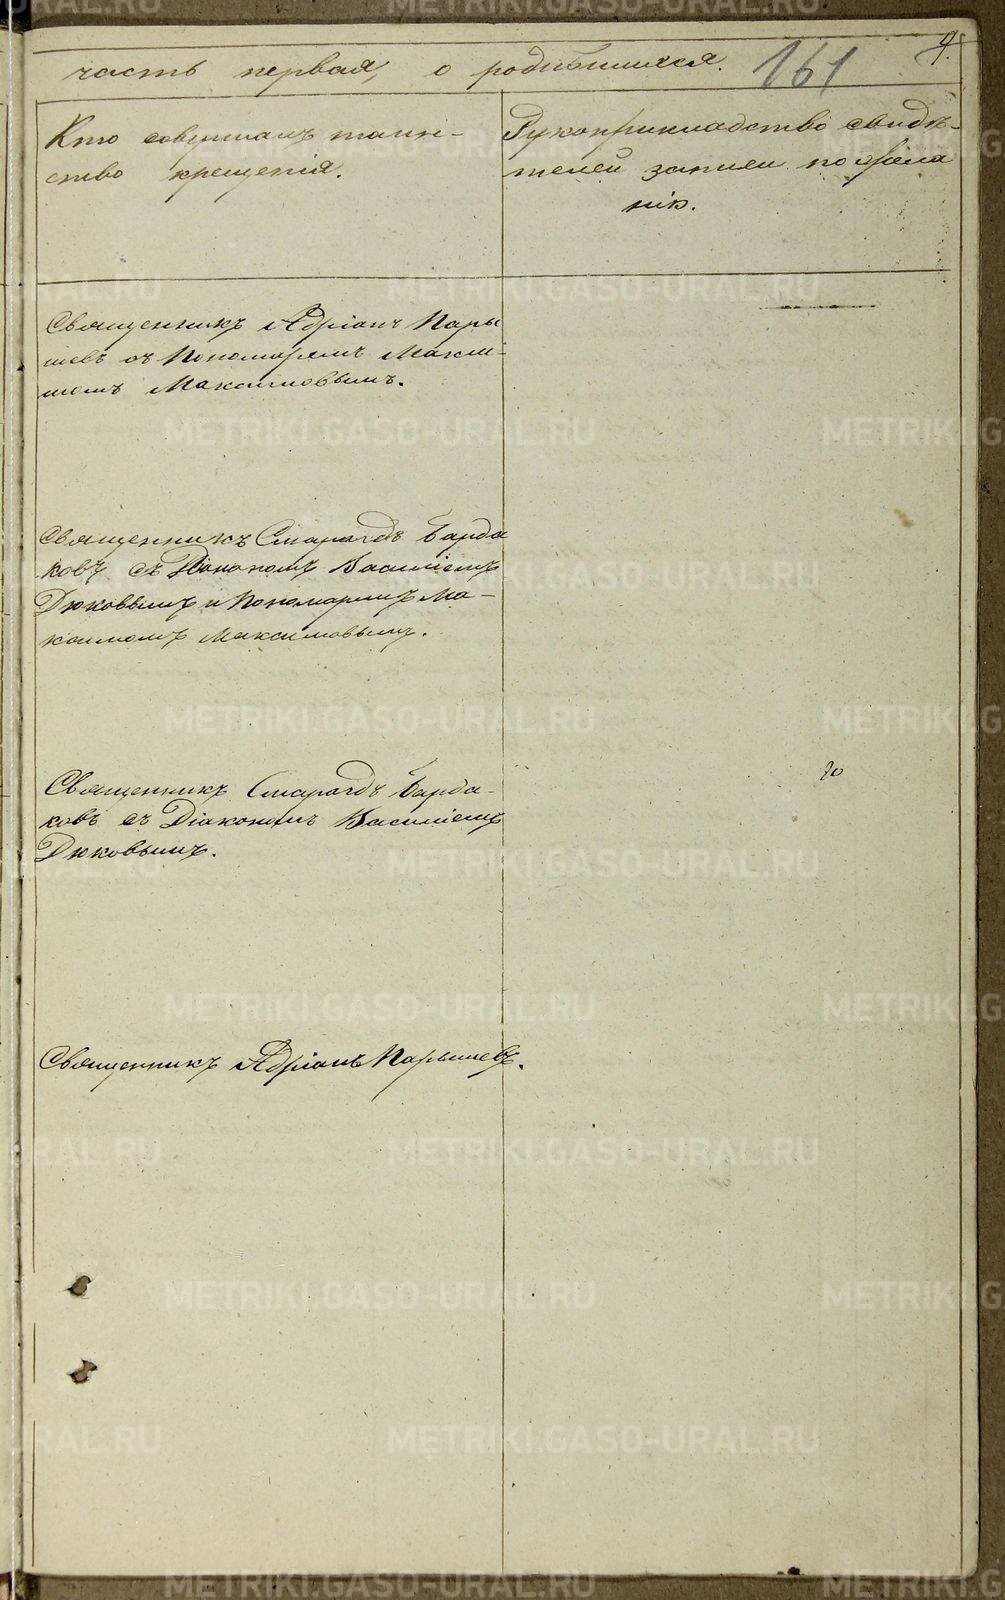 часть первая, о родившихся. 161
Кто совершалъ таин-
ство крещенія.
Рукоприкладство свидѣ-
телей записи по жела
нію.
Священникъ Адріанъ Пары
шевъ съ Пономаремъ Макси-
момъ Максимовымъ.
Священникъ Смарагдъ Барда
ковъ съ Діакономъ Василіемъ
Дюковымъ и Пономаремъ Ма-
ксимомъ Максимовымъ.
Священникъ Смарагдъ Барда-
ковъ съ Діакономъ Василіемъ
Дюковымъ.
Священникъ Адріанъ Парышевъ.
METRIKI.GASO-URAL.RU